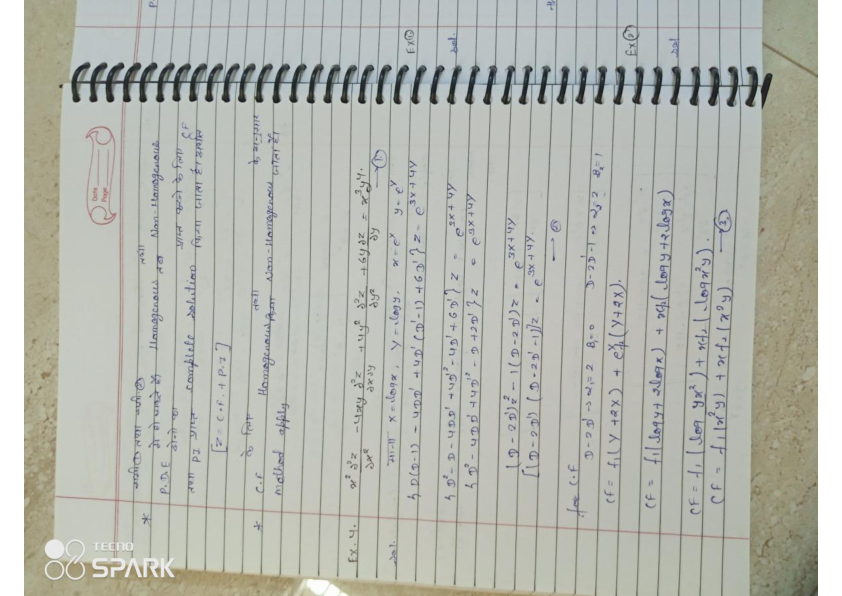 Date
Page
* तथा
P.D.E में हो सकते हैं Homogenous तथा Non-Homogenous
दोनों का प्राप्त करने के लिए CF
तथा PI प्राप्त complete solution किया जाता है।
[Z = C.F. + P.I]
* C.F के लिए Homogenous तथा Non-Homogenous के
method apply किया जाता है।
Ex.4. x² ∂²z/∂x² - 4xy ∂²z/∂x∂y + 4y² ∂²z/∂y² + 6y ∂z/∂y = x³y⁴. → ①
sol. माना X = logx, Y = logy. x = eˣ y = eʸ
{D(D-1) - 4DD' + 4D'(D'-1) + 6D'} z = e³ˣ⁺⁴ʸ
{D² - D - 4DD' + 4D'² - 4D' + 6D'} z = e³ˣ⁺⁴ʸ
{D² - 4DD' + 4D'² - D + 2D'} z = e³ˣ⁺⁴ʸ
(D-2D')² - 1(D-2D') z = e³ˣ⁺⁴ʸ
[(D-2D') (D-2D'-1)] z = e³ˣ⁺⁴ʸ. → ②
for C.F
D-2D' → 2 = 2 B₁ = 0 D-2D'-1 → 2 = 2 B₂ = 1
CF = f₁(Y+2X) + eˣf₂(Y+2X).
CF = f₁(logy+2logx) + xf₂(logy+2logx)
CF = f₁(log yx²) + xf₂(logx²y).
CF = f₁(x²y) + xf₂(x²y) → ③
Ex①
sol.
Ex②
sol
TECNO
SPARK